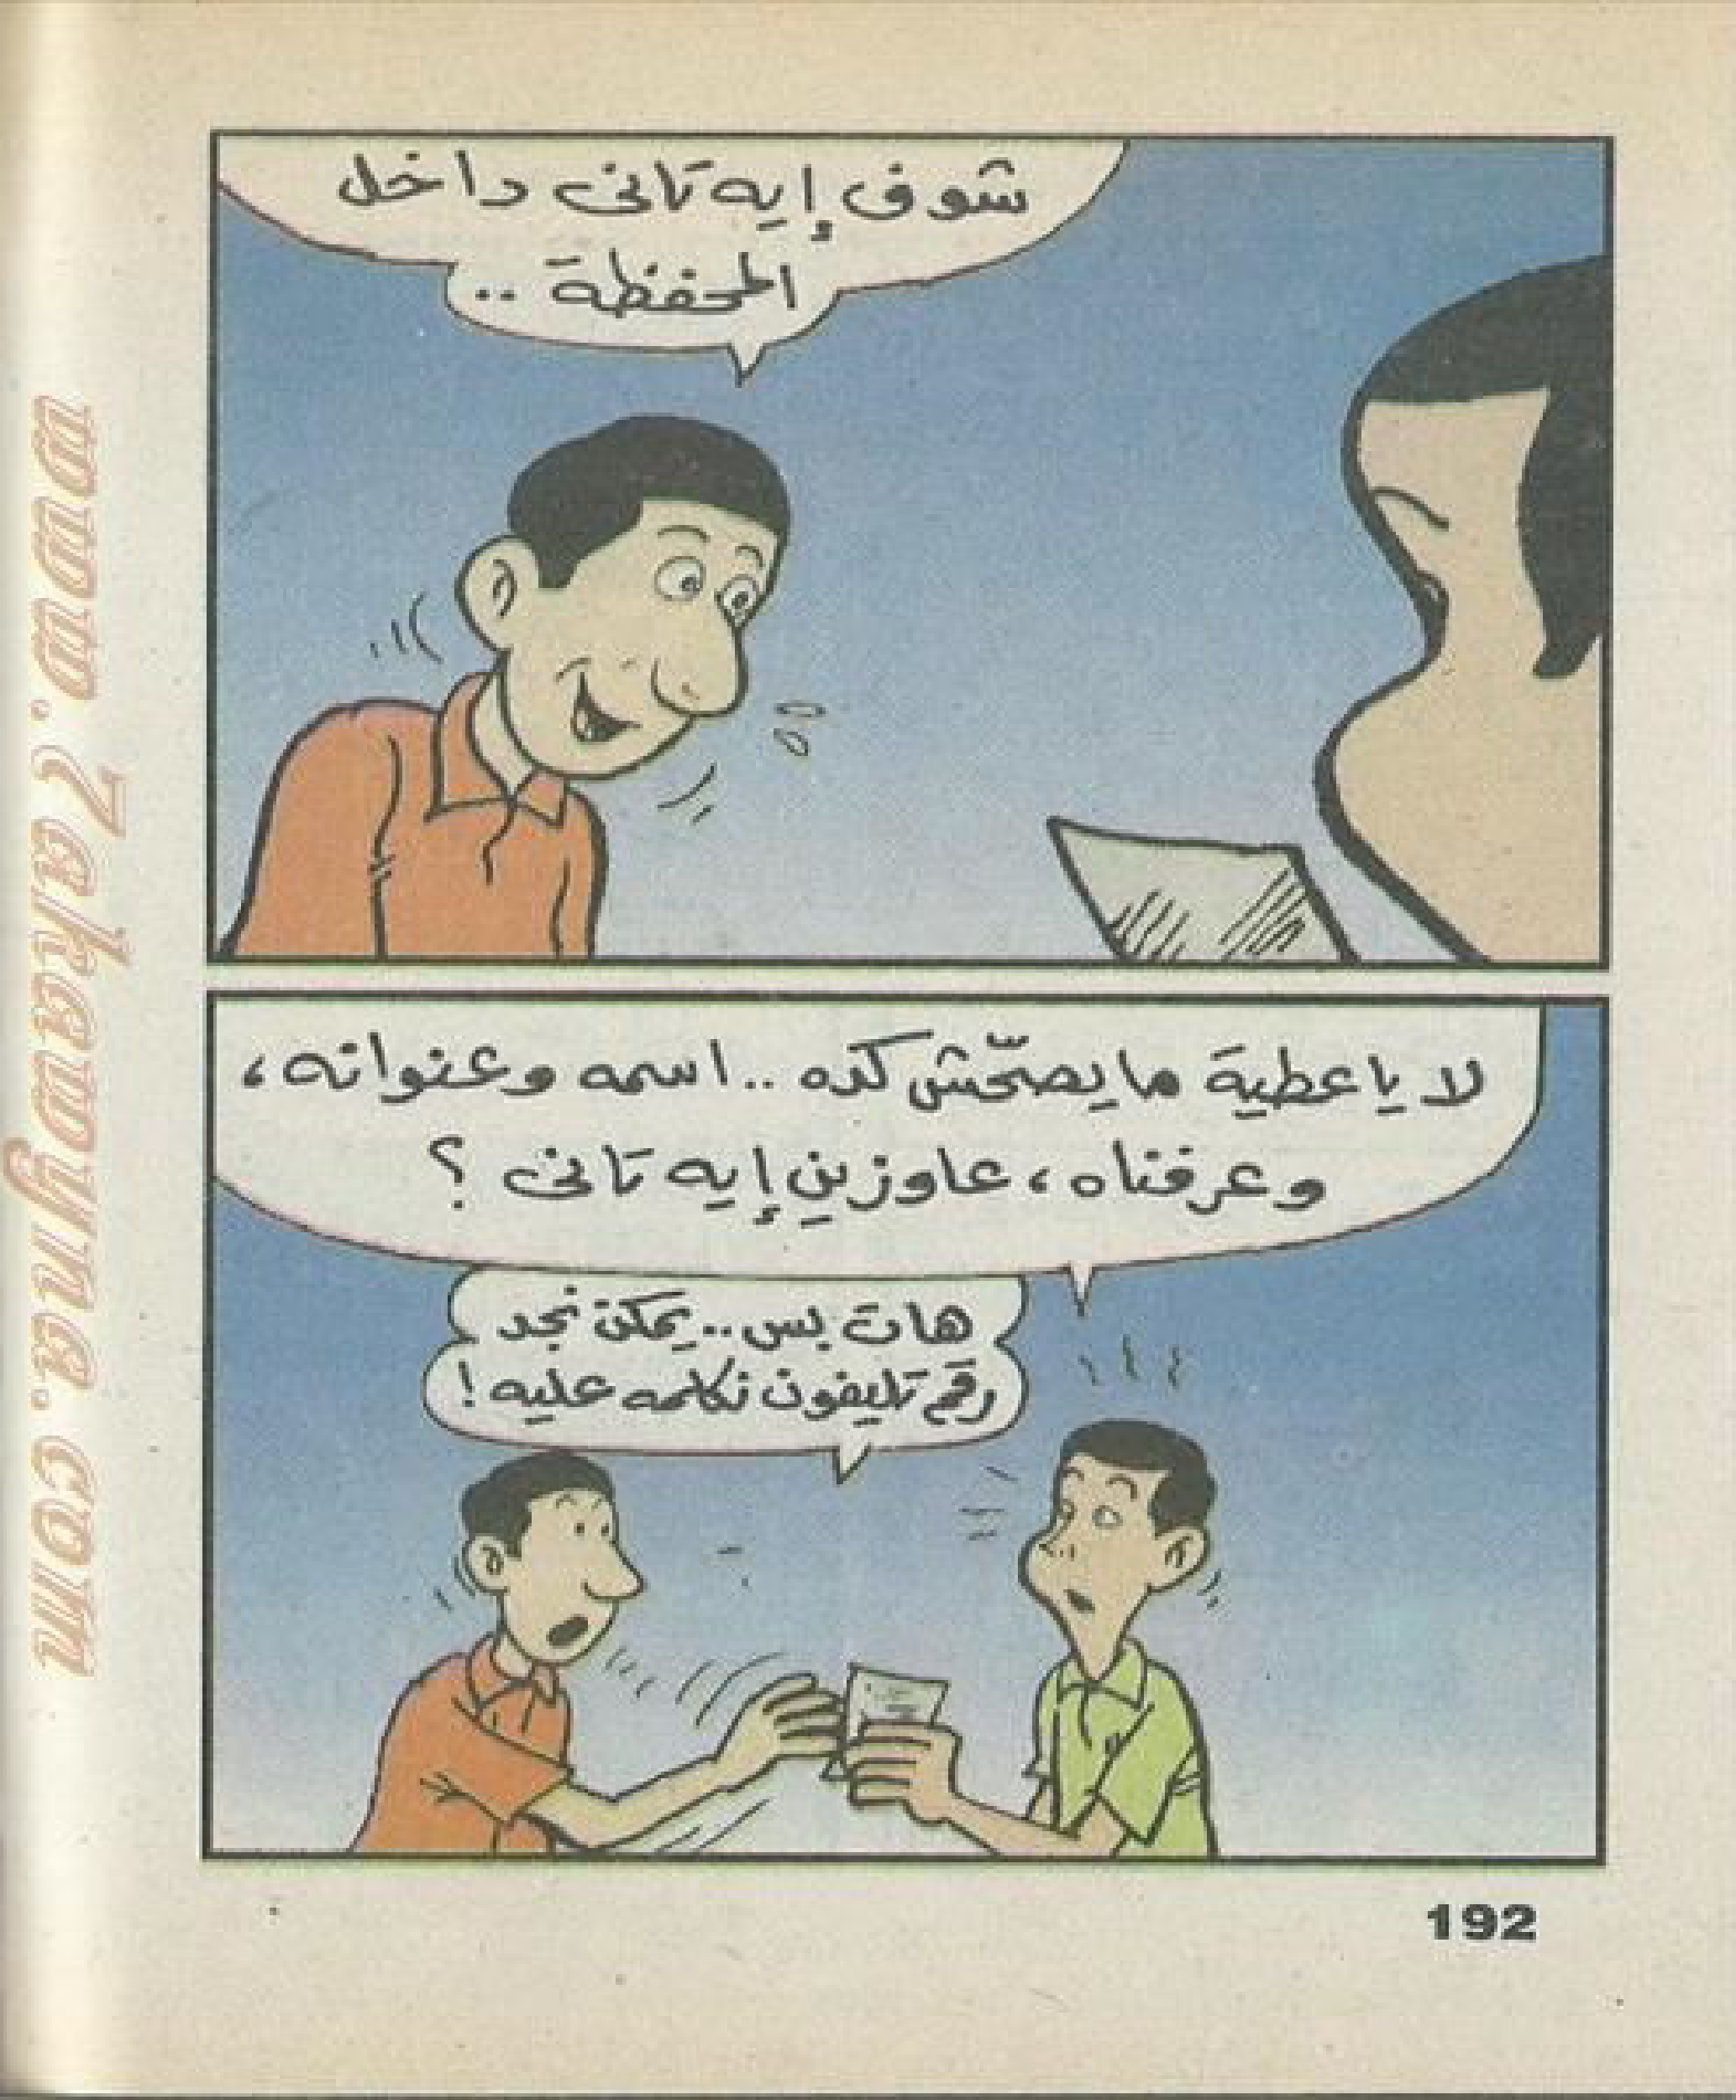 شوف إيه تانى داخل
المحفظة ..
لا يا عطية ما يصحّش كده .. اسمه وعنوانه،
وعرفناه، عاوزين إيه تانى ؟
هات بس .. يمكن نجد
رقم تليفون نكلمه عليه !
192
www.7akawyna.com